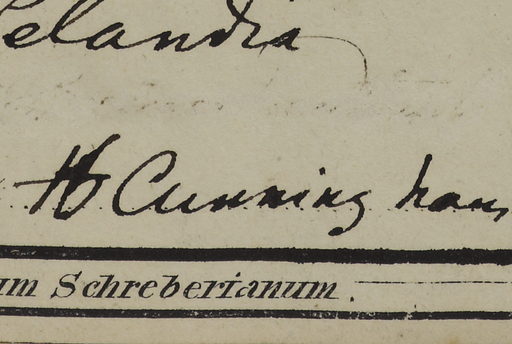 elandia
H Cunningham
um Schreberianum.